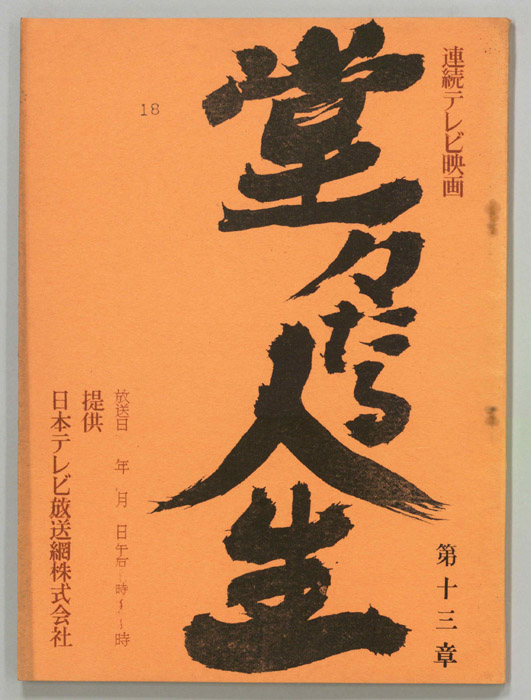 連続テレビ映画
堂々たる人生
第十三章
18
放送日 年 月 日午后 時〜 時
提供
日本テレビ放送網株式会社